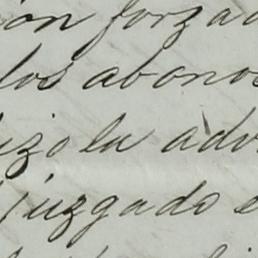 ion forzad
los abonos
izo la adv
juzgado e